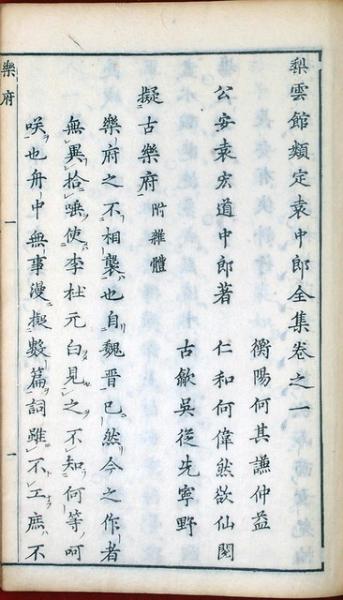 梨雲館類定袁中郎全集卷之一
衡陽何其謙仲益
公安袁宏道中郎著 仁和何偉然欲仙閱
古歙吳從先寧野
擬古樂府 附雜體
樂府之不相襲也自魏晉已然今之作者
無異拾唾使李杜元白見之不知何等呵
咲也舟中無事漫擬數篇詞雖不工庶不
樂府 一